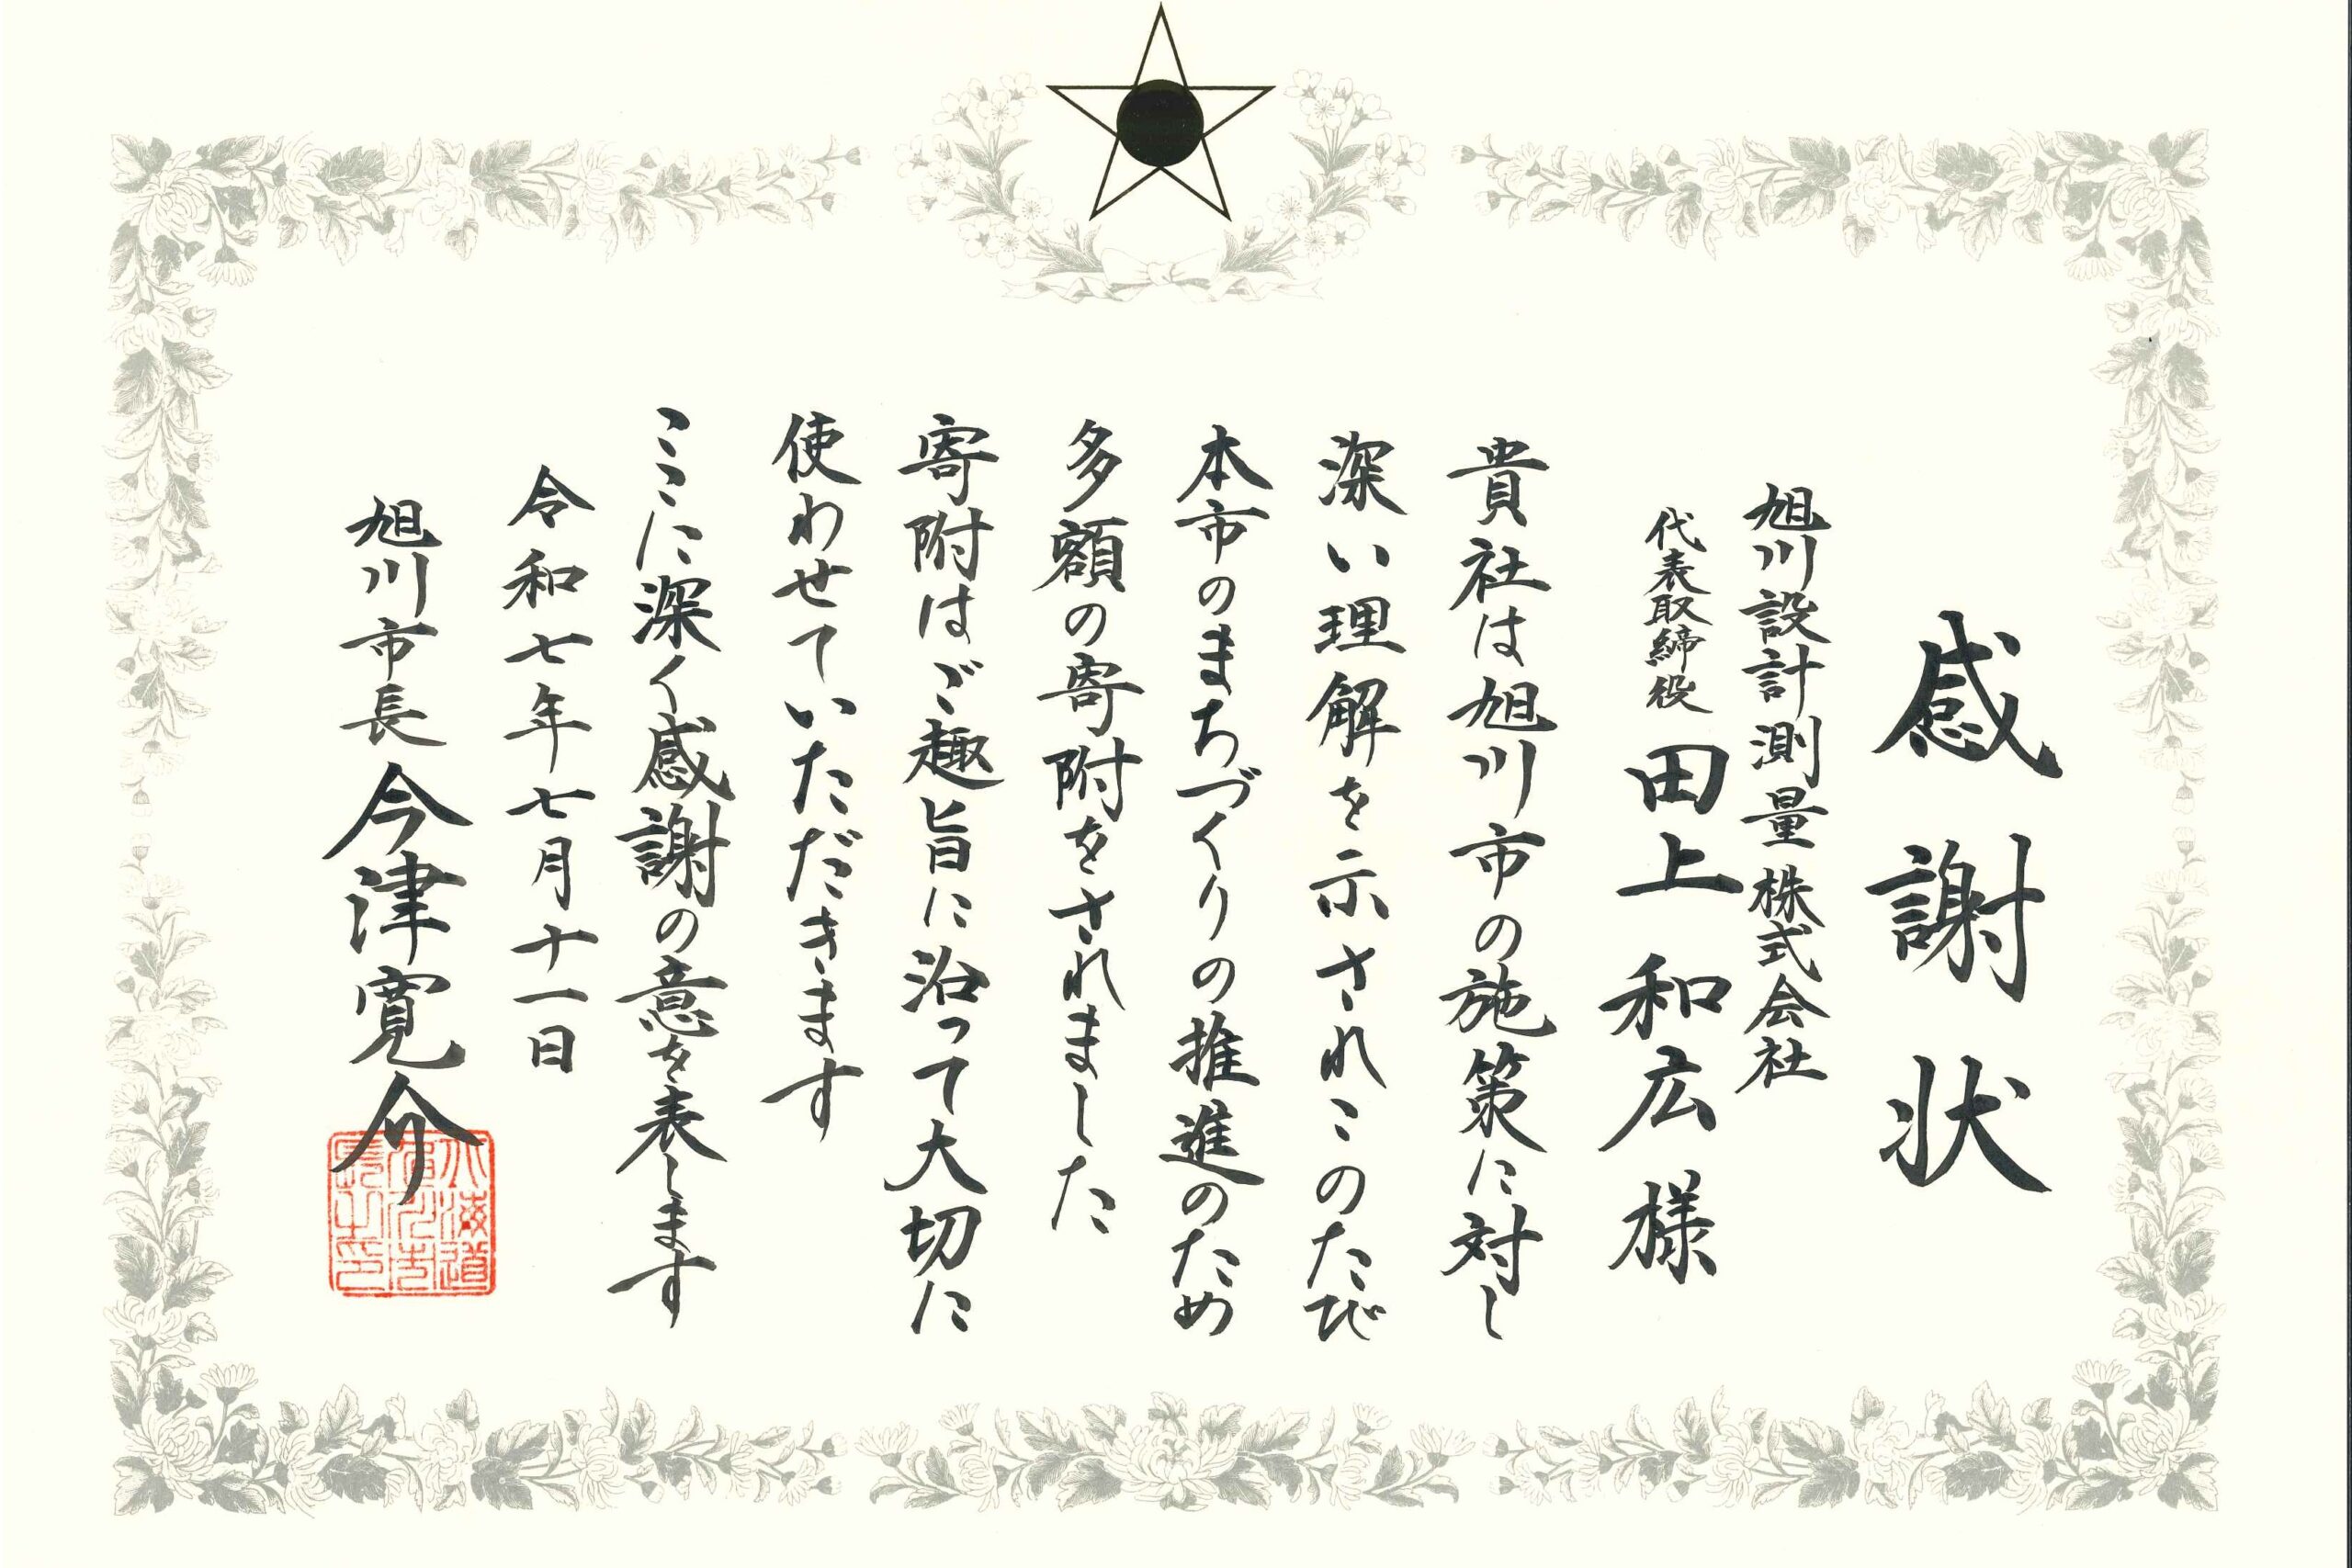 感謝状
旭川設計測量株式会社
代表取締役 田上和広様
貴社は旭川市の施策に対し
深い理解を示されこのたび
本市のまちづくりの推進のため
多額の寄附をされました
寄附はご趣旨に沿って大切に
使わせていただきます
ここに深く感謝の意を表します
令和七年七月十一日
旭川市長 今津寛介
北海道
旭川市
長之印